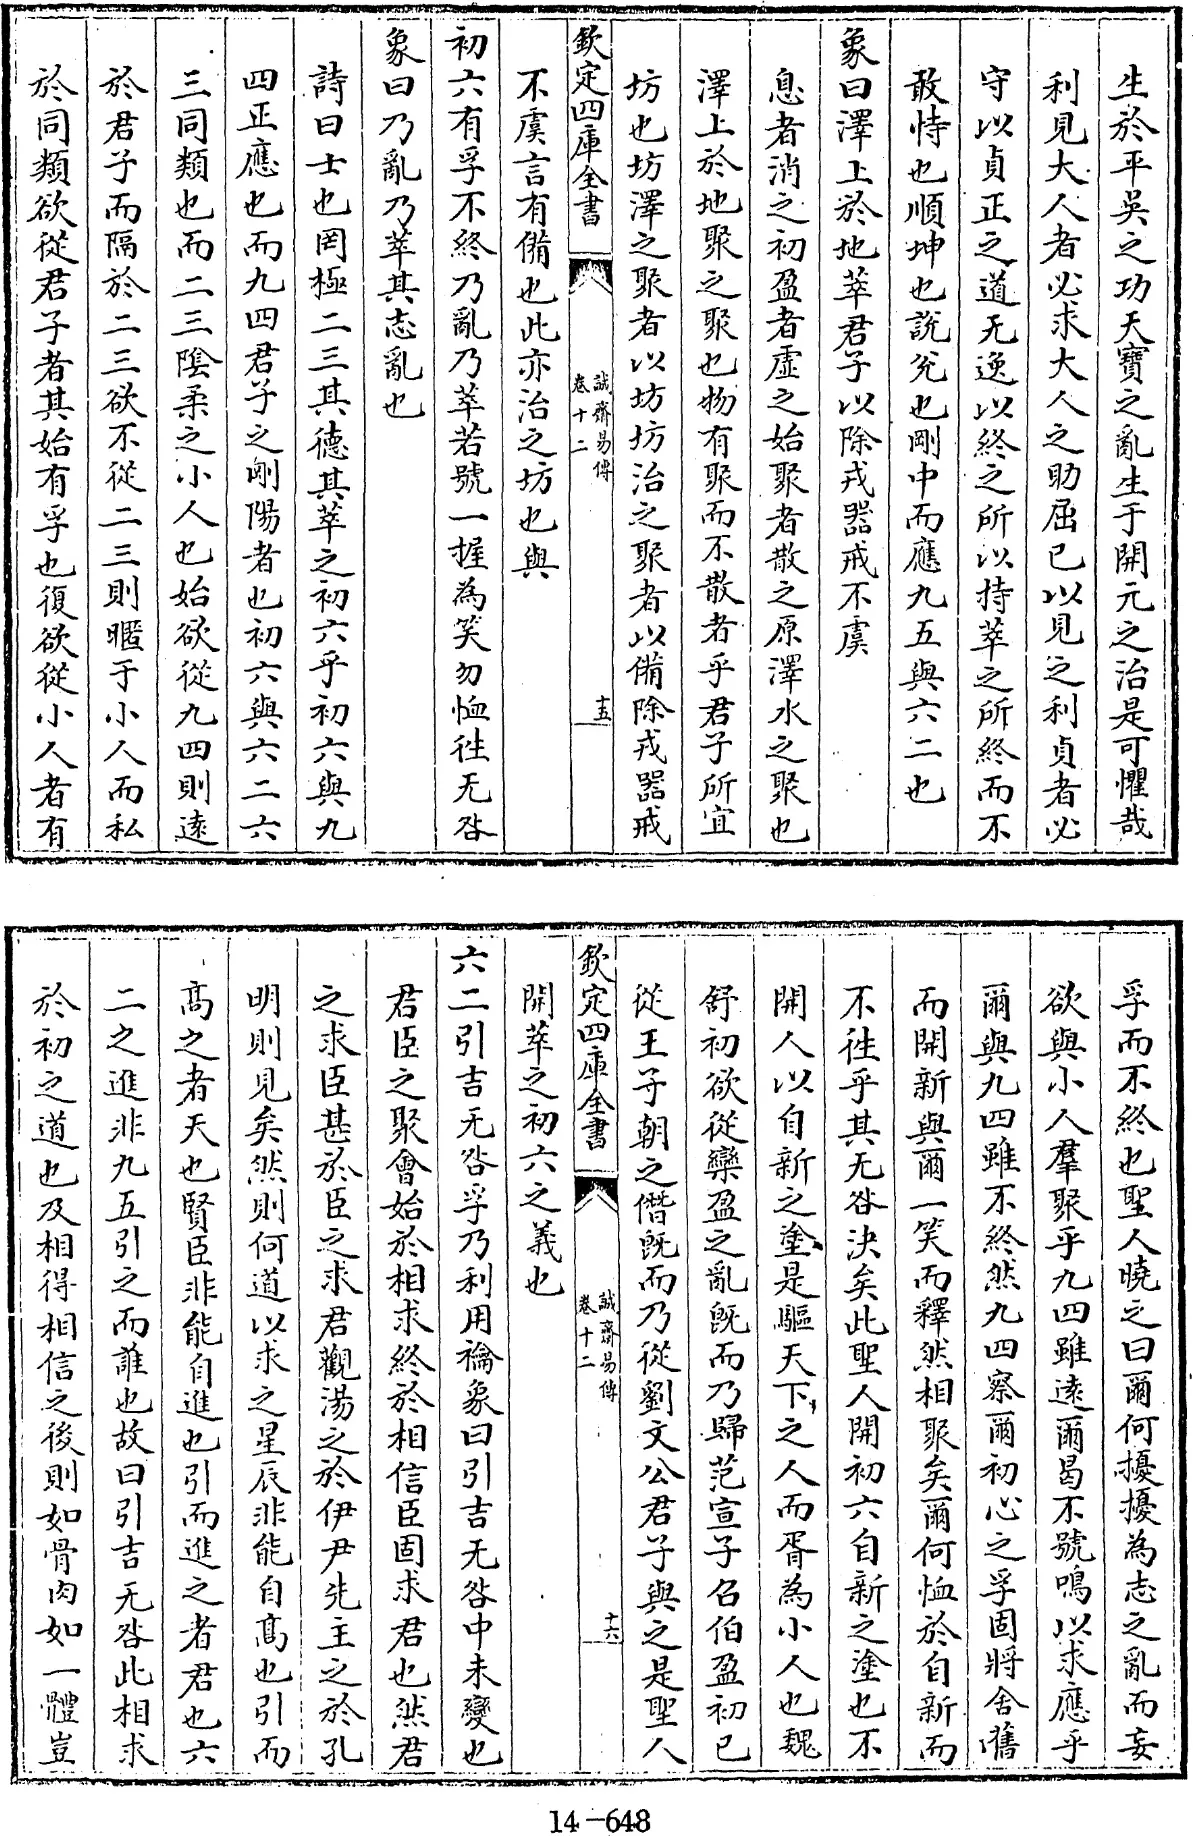 生於平吳之功天寶之亂生于開元之治是可懼哉
利見大人者必求大人之助屈已以見之利貞者必
守以貞正之道无逸以終之所以持萃之所終而不
敢恃也順坤也說兊也剛中而應九五與六二也
象曰澤上於地萃君子以除戎器戒不虞
息者消之初盈者虛之始聚者散之原澤水之聚也
澤上於地聚之聚也物有聚而不散者乎君子所宜
坊也坊澤之聚者以坊坊治之聚者以備除戎器戒
欽定四庫全書
誠齋易傳
卷十二
十五
不虞言有備也此亦治之坊也與
初六有孚不終乃亂乃萃若號一握為笑勿恤徃无咎
象曰乃亂乃萃其志亂也
詩曰士也罔極二三其德其萃之初六乎初六與九
四正應也而九四君子之剛陽者也初六與六二六
三同類也而二三隂柔之小人也始欲從九四則逺
於君子而隔於二三欲不從二三則暱于小人而私
於同類欲從君子者其始有孚也復欲從小人者有
孚而不終也聖人曉之曰爾何擾擾為志之亂而妄
欲與小人羣聚乎九四雖逺爾曷不號鳴以求應乎
爾與九四雖不終然九四察爾初心之孚固將舍舊
而開新與爾一笑而釋然相聚矣爾何恤於自新而
不徃乎其无咎決矣此聖人開初六自新之塗也不
開人以自新之塗是驅天下之人而胥為小人也魏
舒初欲從欒盈之亂旣而乃歸范宣子召伯盈初已
從王子朝之僭旣而乃從劉文公君子與之是聖人
欽定四庫全書
誠齋易傳
卷十二
十六
開萃之初六之義也
六二引吉无咎孚乃利用禴象曰引吉无咎中未變也
君臣之聚會始於相求終於相信臣固求君也然君
之求臣甚於臣之求君觀湯之於伊尹先主之於孔
明則見矣然則何道以求之星辰非能自髙也引而
髙之者天也賢臣非能自進也引而進之者君也六
二之進非九五引之而誰也故曰引吉无咎此相求
於初之道也及相得相信之後則如骨肉如一體豈
14-648